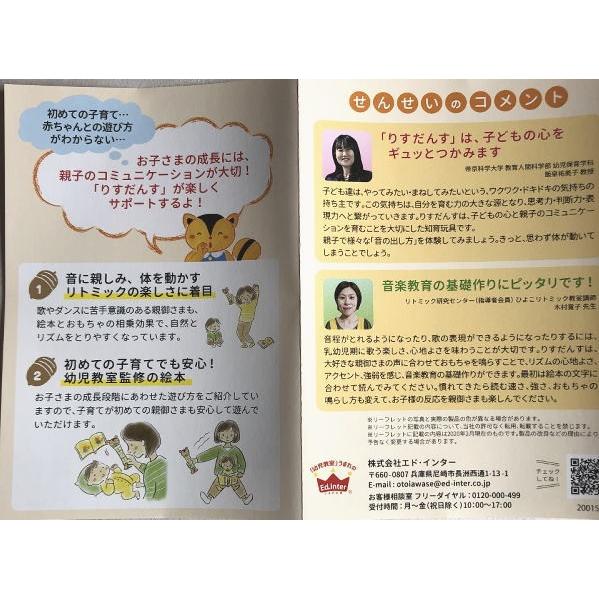 初めての子育て…
赤ちゃんとの遊び方
がわからない…
お子さまの成長には、
親子のコミュニケーションが大切!
「りすだんす」が楽しく
サポートするよ!
1
音に親しみ、体を動かす
リトミックの楽しさに着目
歌やダンスに苦手意識のある親御さまも、
絵本とおもちゃの相乗効果で、自然と
リズムをとりやすくなっています。
2
初めての子育てでも安心!
幼児教室監修の絵本
お子さまの成長段階にあわせた遊び方をご紹介してい
ますので、子育てが初めての親御さまも安心して遊んで
いただけます。
せんせいのコメント
「りすだんす」は、子どもの心を
ギュッとつかみます
帝京科学大学 教育人間科学部 幼児保育学科
飯泉祐美子 教授
子ども達は、やってみたい・まねしてみたいという、ワクワク・ドキドキの気持ちの
持ち主です。この気持ちは、自分を育む力の大きな源となり、思考力・判断力・表
現力へと繋がっていきます。りすだんすは、子どもの心と親子のコミュニケー
ションを育むことを大切にした知育玩具です。
親子で様々な「音の出し方」を体験してみましょう。きっと、思わず体が動いて
しまうことでしょう。
音楽教育の基礎作りにピッタリです!
リトミック研究センター(指導者会員) ひよこリトミック教室講師
木村寛子 先生
音程がとれるようになったり、歌の表現ができるようになったりするには、
乳幼児期に歌う楽しさ、心地よさを味わうことが大切です。りすだんすは、
大好きな親御さまの声に合わせておもちゃを鳴らすことで、リズムの心地よさ、
アクセント、強弱を感じ、音楽教育の基礎作りができます。最初は絵本の文字に
合わせて読んでみてください。慣れてきたら読む速さ、強さ、おもちゃの
鳴らし方も変えて、お子様の反応を親御さまも楽しんでください。
※リーフレットの写真と実際の製品の色が異なる場合があります。
※リーフレット記載の内容について、当社の許可なく転用、転載することを禁じます。
※リーフレットに記載の内容は2020年2月現在のものです。製品の改良などの理由により
予告なく変更する場合があります。
「幼児教室」うまれの
Ed.Inter
株式会社エド・インター
〒660-0807 兵庫県尼崎市長洲西通1-13-1
E-mail : otoiawase@ed-inter.co.jp
お客様相談室 フリーダイヤル : 0120-000-499
受付時間 : 月〜金(祝日除く)10:00〜17:00
チェック
してね!
20015